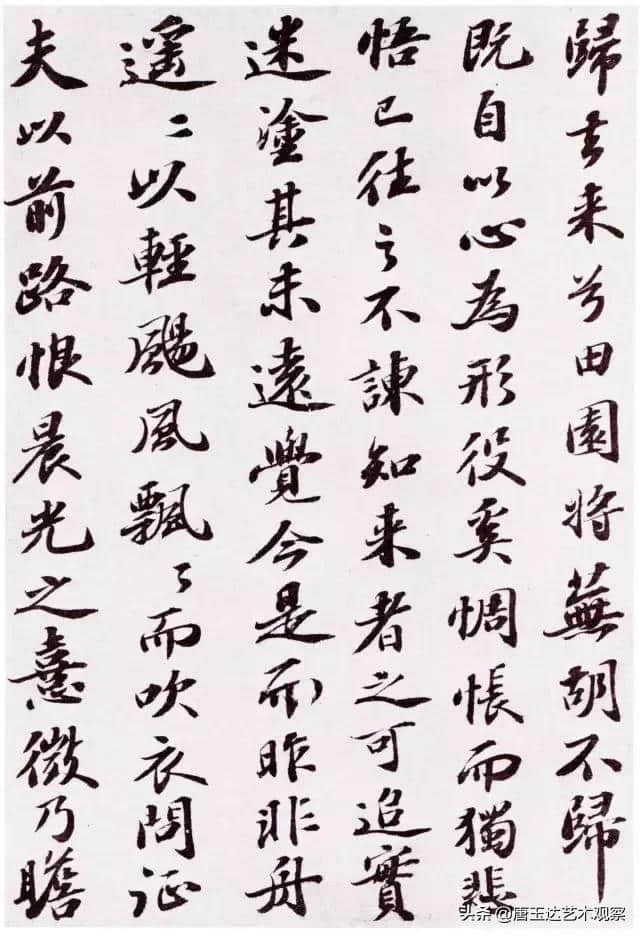 歸去来兮田園将蕪胡不歸
既自以心為形役奚惆悵而獨悲
悟已往之不諫知来者之可追實
迷塗其未遠覺今是而昨非舟
遥々以輕颺風飄々而吹衣問征
夫以前路恨晨光之憙微乃瞻
头条 @唐玉达艺术观察